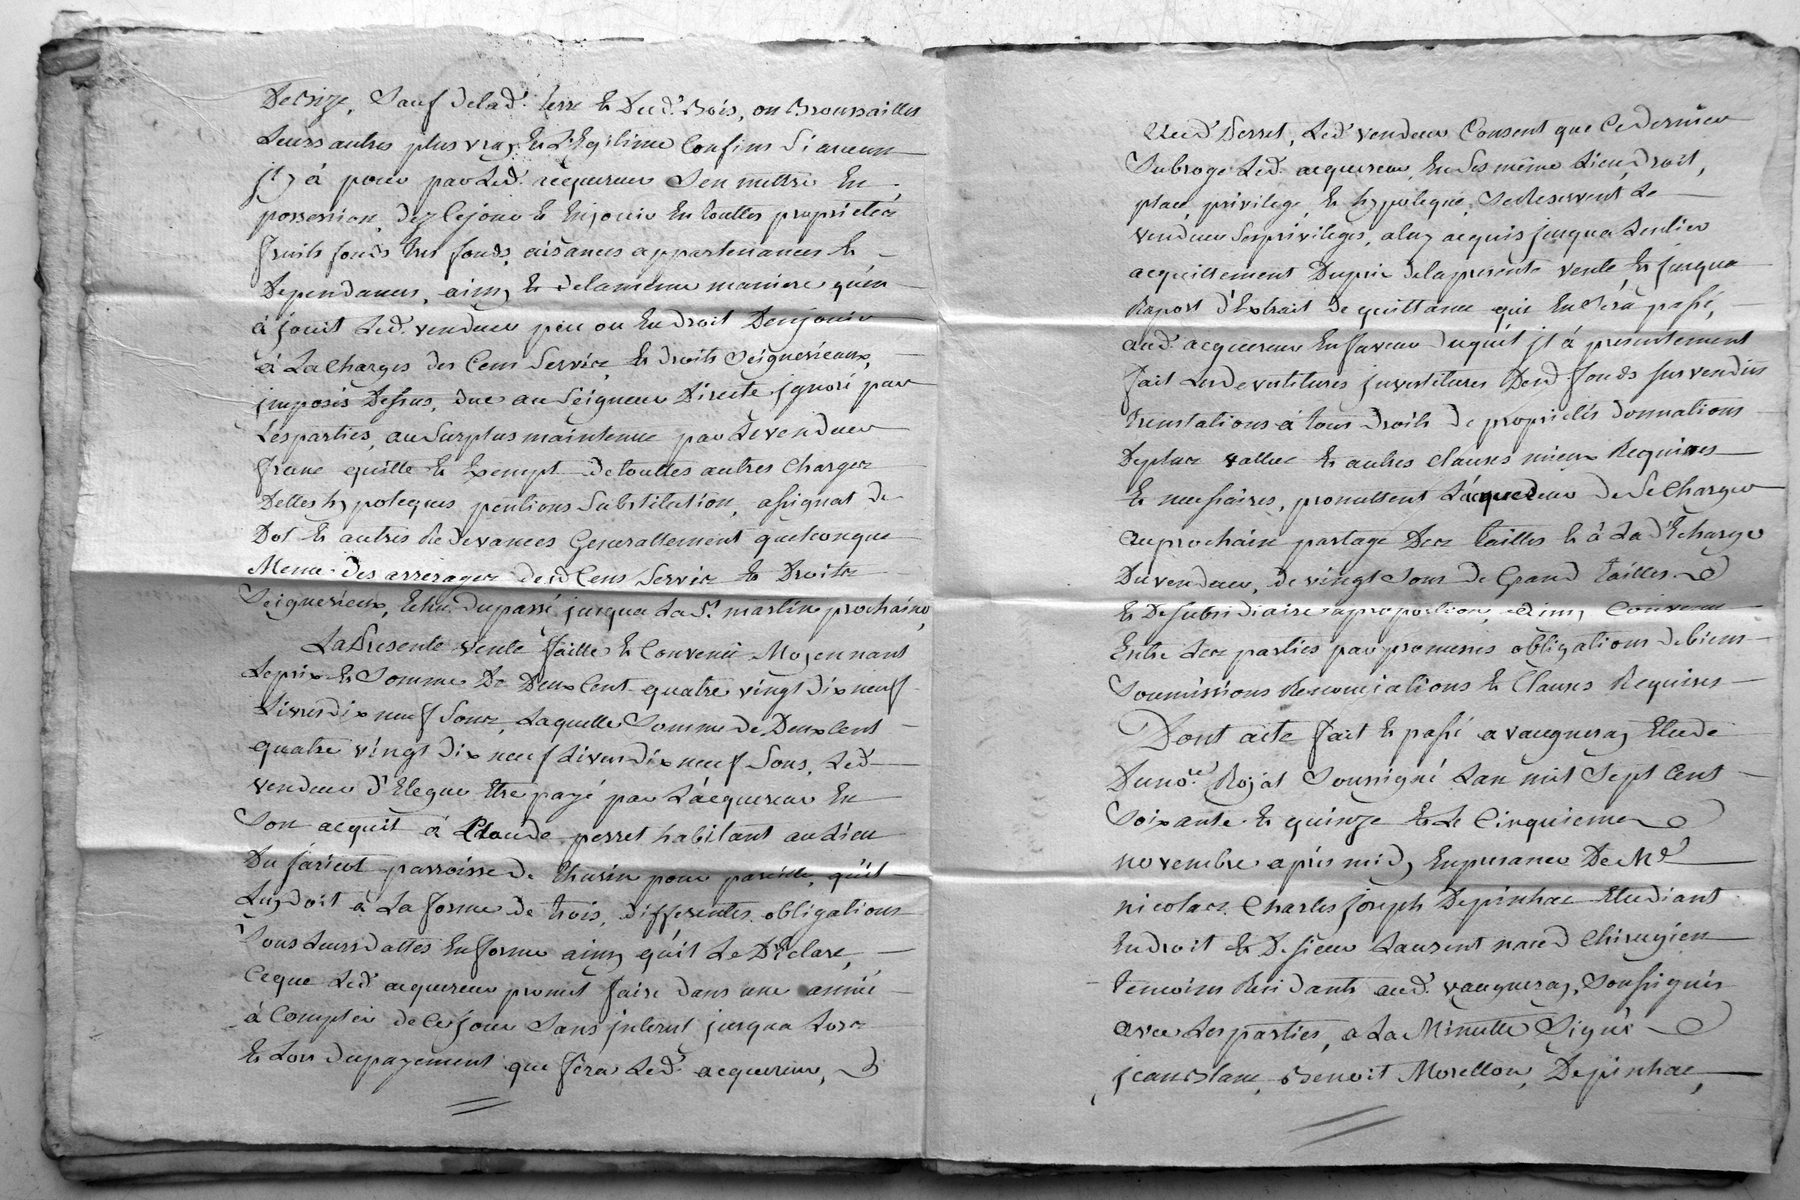 De Bize, Sauf delad. terre & Dud. Bois, ou Broussailles
Leurs autres plus vray & Legitime Confins Si aucun
jl y à pour par Led. acquereur S'en mettre En
possession, dez Cejour & En jouir En touttes proprietez
fruits fonds tres fonds, aisances appartenances &
Dependances, ainsy & delamême maniere qu'en
à jouit Led. vendeur peu ou En droit Denjouir
à La Charges des Cens Service & droits Seigneuriaux,
jmposés Dessus, due au Seigneur Directe jgnoré par
Les parties, au Surplus maintenue par Le vendeur
franc quitte & Exempt de touttes autres Charges
Dettes hypoteques pentions Substitution, assignat de
Dot & autres Redevances Generallement quelconque
Meme des arrerages desd Cens Servis & Droits
Seigneurieux, Echu dupassé jusqua La St. martin prochaine,
La Presente vente faitte & Convenue Moyennant
Le prix & Somme De Deux Cent quatre vingt dix neuf
Livres dix neuf Sous, Laquelle Somme de Deux Cent
quatre vingt dix neuf Livres dix neuf Sous, Led
vendeur d'Elegue Etre payé par L'acquereur En
Son acquit à Claude perret habitant au Lieu
Du jarieut parroisse de thurin pour pareille, qu'il
Luy doit à La forme de trois, differentes obligations
Sous Leurs dattes En forme ainsy qu'il Le Déclare,
Ceque Led. acquereur promet faire dans une année
à Compter de Ce jour Sans jnterest jusqua Lors
& Lors dupayement que fera Led. acquereur,
Aud Perret, Led. vendeur Consent que Ce dernier
Subroge Led. acquereur, En Ses même Lieu, droit,
place, privilege, & hypoteque, Se Reservent Le
vendeur Ses privileges, a luy acquis jusqua Lentier
acquittement Duprix delapresente vente & jusqua
Raport d'Extrait de quittance qui En Sera passé,
aud. acquereur En faveur duquel jl à presentement
fait Les devestitures jnvestitures Desd fonds survendus
translations à tous droits de proprietés donnations
De plus vallue & autres clauses mieux Requises
& necessaires, promettent L'acquereur de Se Charger
au prochain partage Des tailles & à La d'Echarge
Du vendeur, de vingt Sous de Grand tailles
& De Subsidiaire aproportion, ainsy Convenu
Entre Les parties par promesses obligations de biens
Soumissions Renonciations & Clauses Requises
Dont acte fait & passé a vaugneray Etude
Du nore. Rojat Soussigné Lan mil Sept Cent
Soixante & quinze & Le Cinquieme
novembre après midy En presence De Me
nicolas Charles joseph Depinhac Etudiant
En droit & De sieur Laurent naud Chirugien
temoins Residants aud. vaugneray, Soussignés
avec Les parties, a La Minutte Signé
jean blanc, Benoit Morellon, Depinhac,